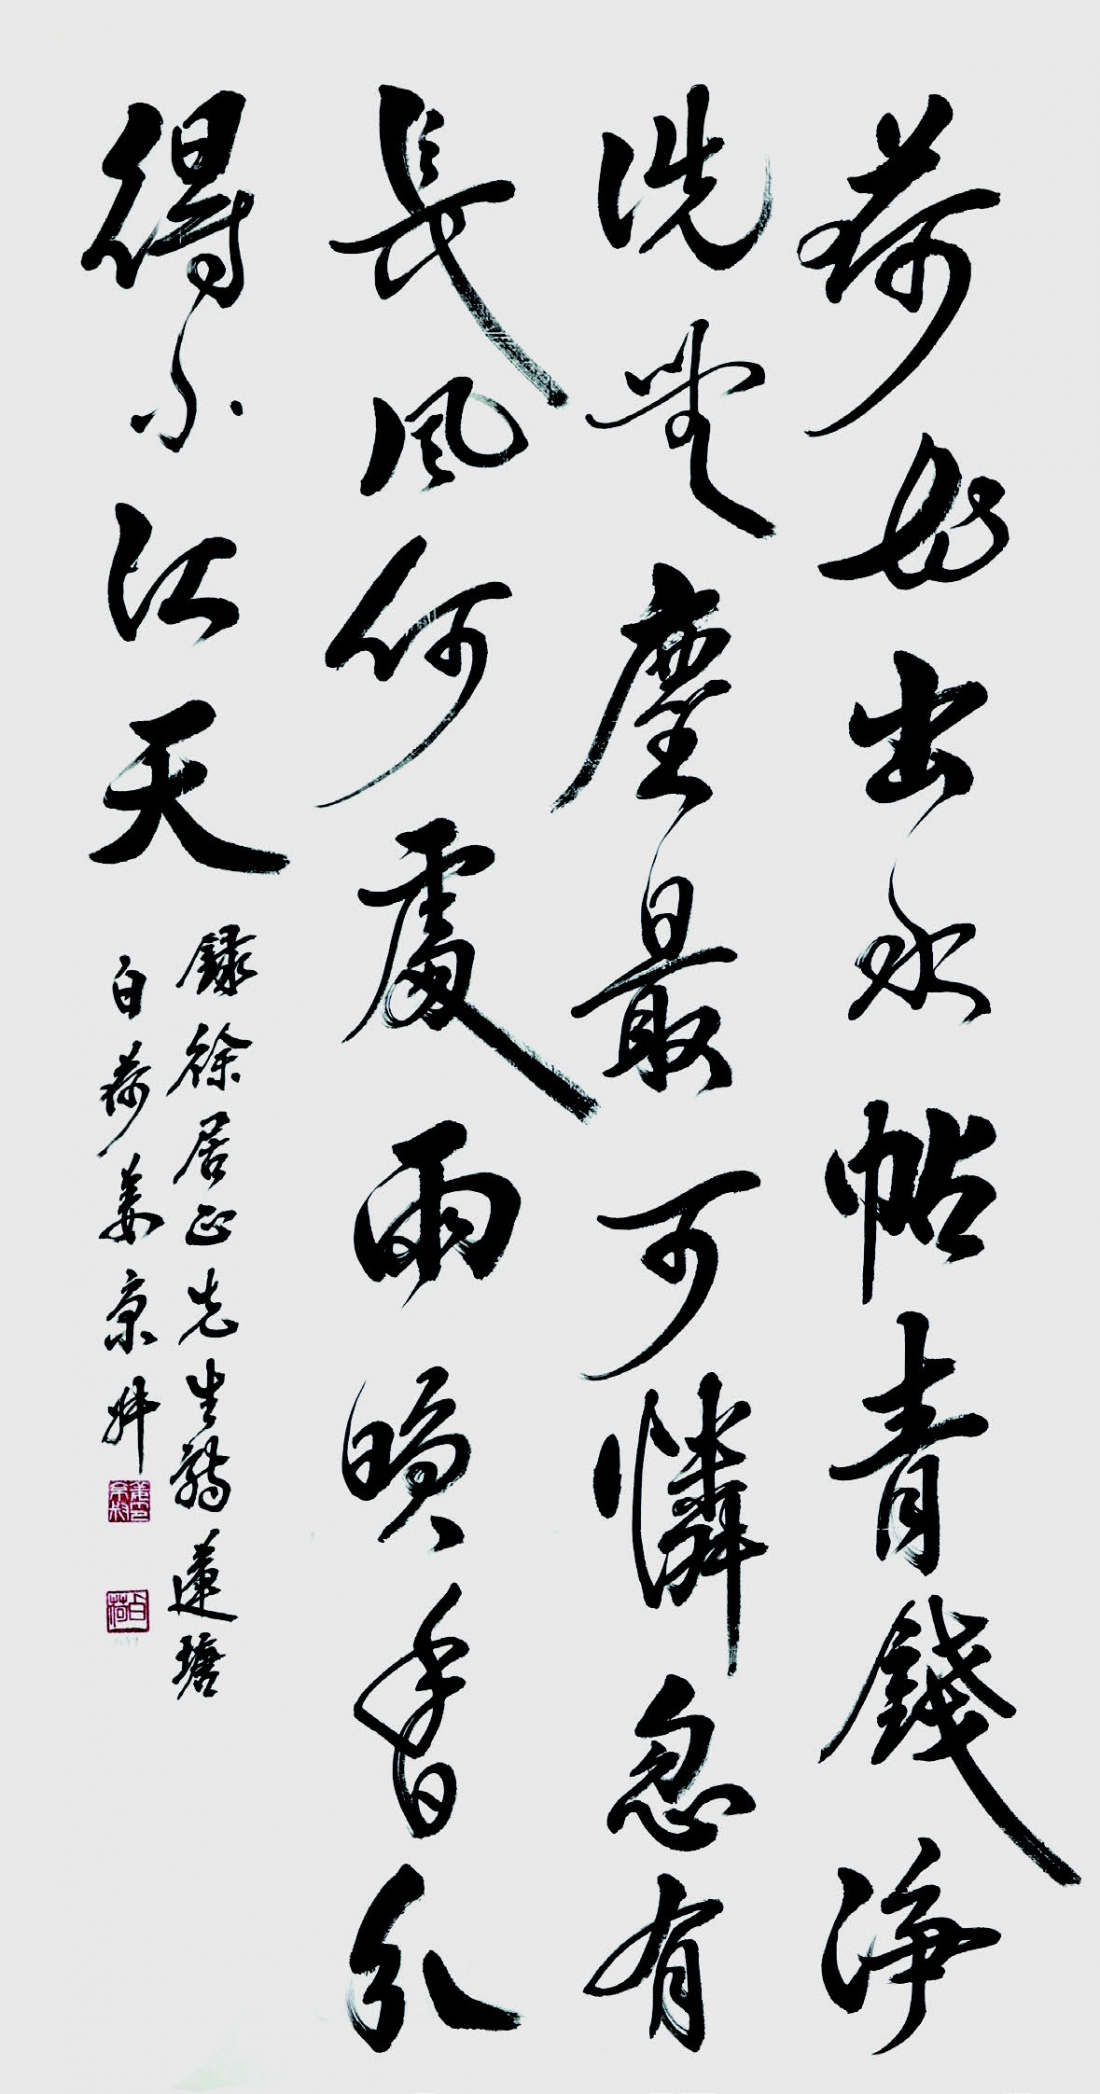 荷始出水帖青錢淨
洗無塵最可憐忽有
長風何處雨香
得小江天
錄徐居正先生蓮塘
白荷姜京
白荷